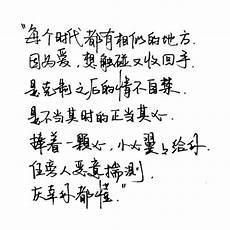 "每个时代都有相似的地方.
因为爱,想触碰又收回手.
是克制之后的情不自禁.
是不当其时的正当其心.
捧着一颗心,小心翼々给孙.
任旁人恶意揣测,
庆幸孙都懂."